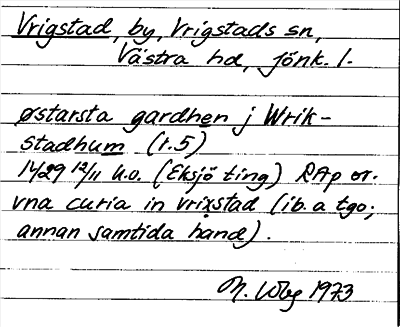 Vrigstad, by, Vrigstads sn,
Västra hd, Jönk. l.
østarsta gardhen j Wrik-
stadhum (r. 5)
1429 12/11 u.o. (Eksjö ting) RAp or.
vna curia in vrixstad (ib. a tgo;
annan samtida hand).
N. Wbg 1973